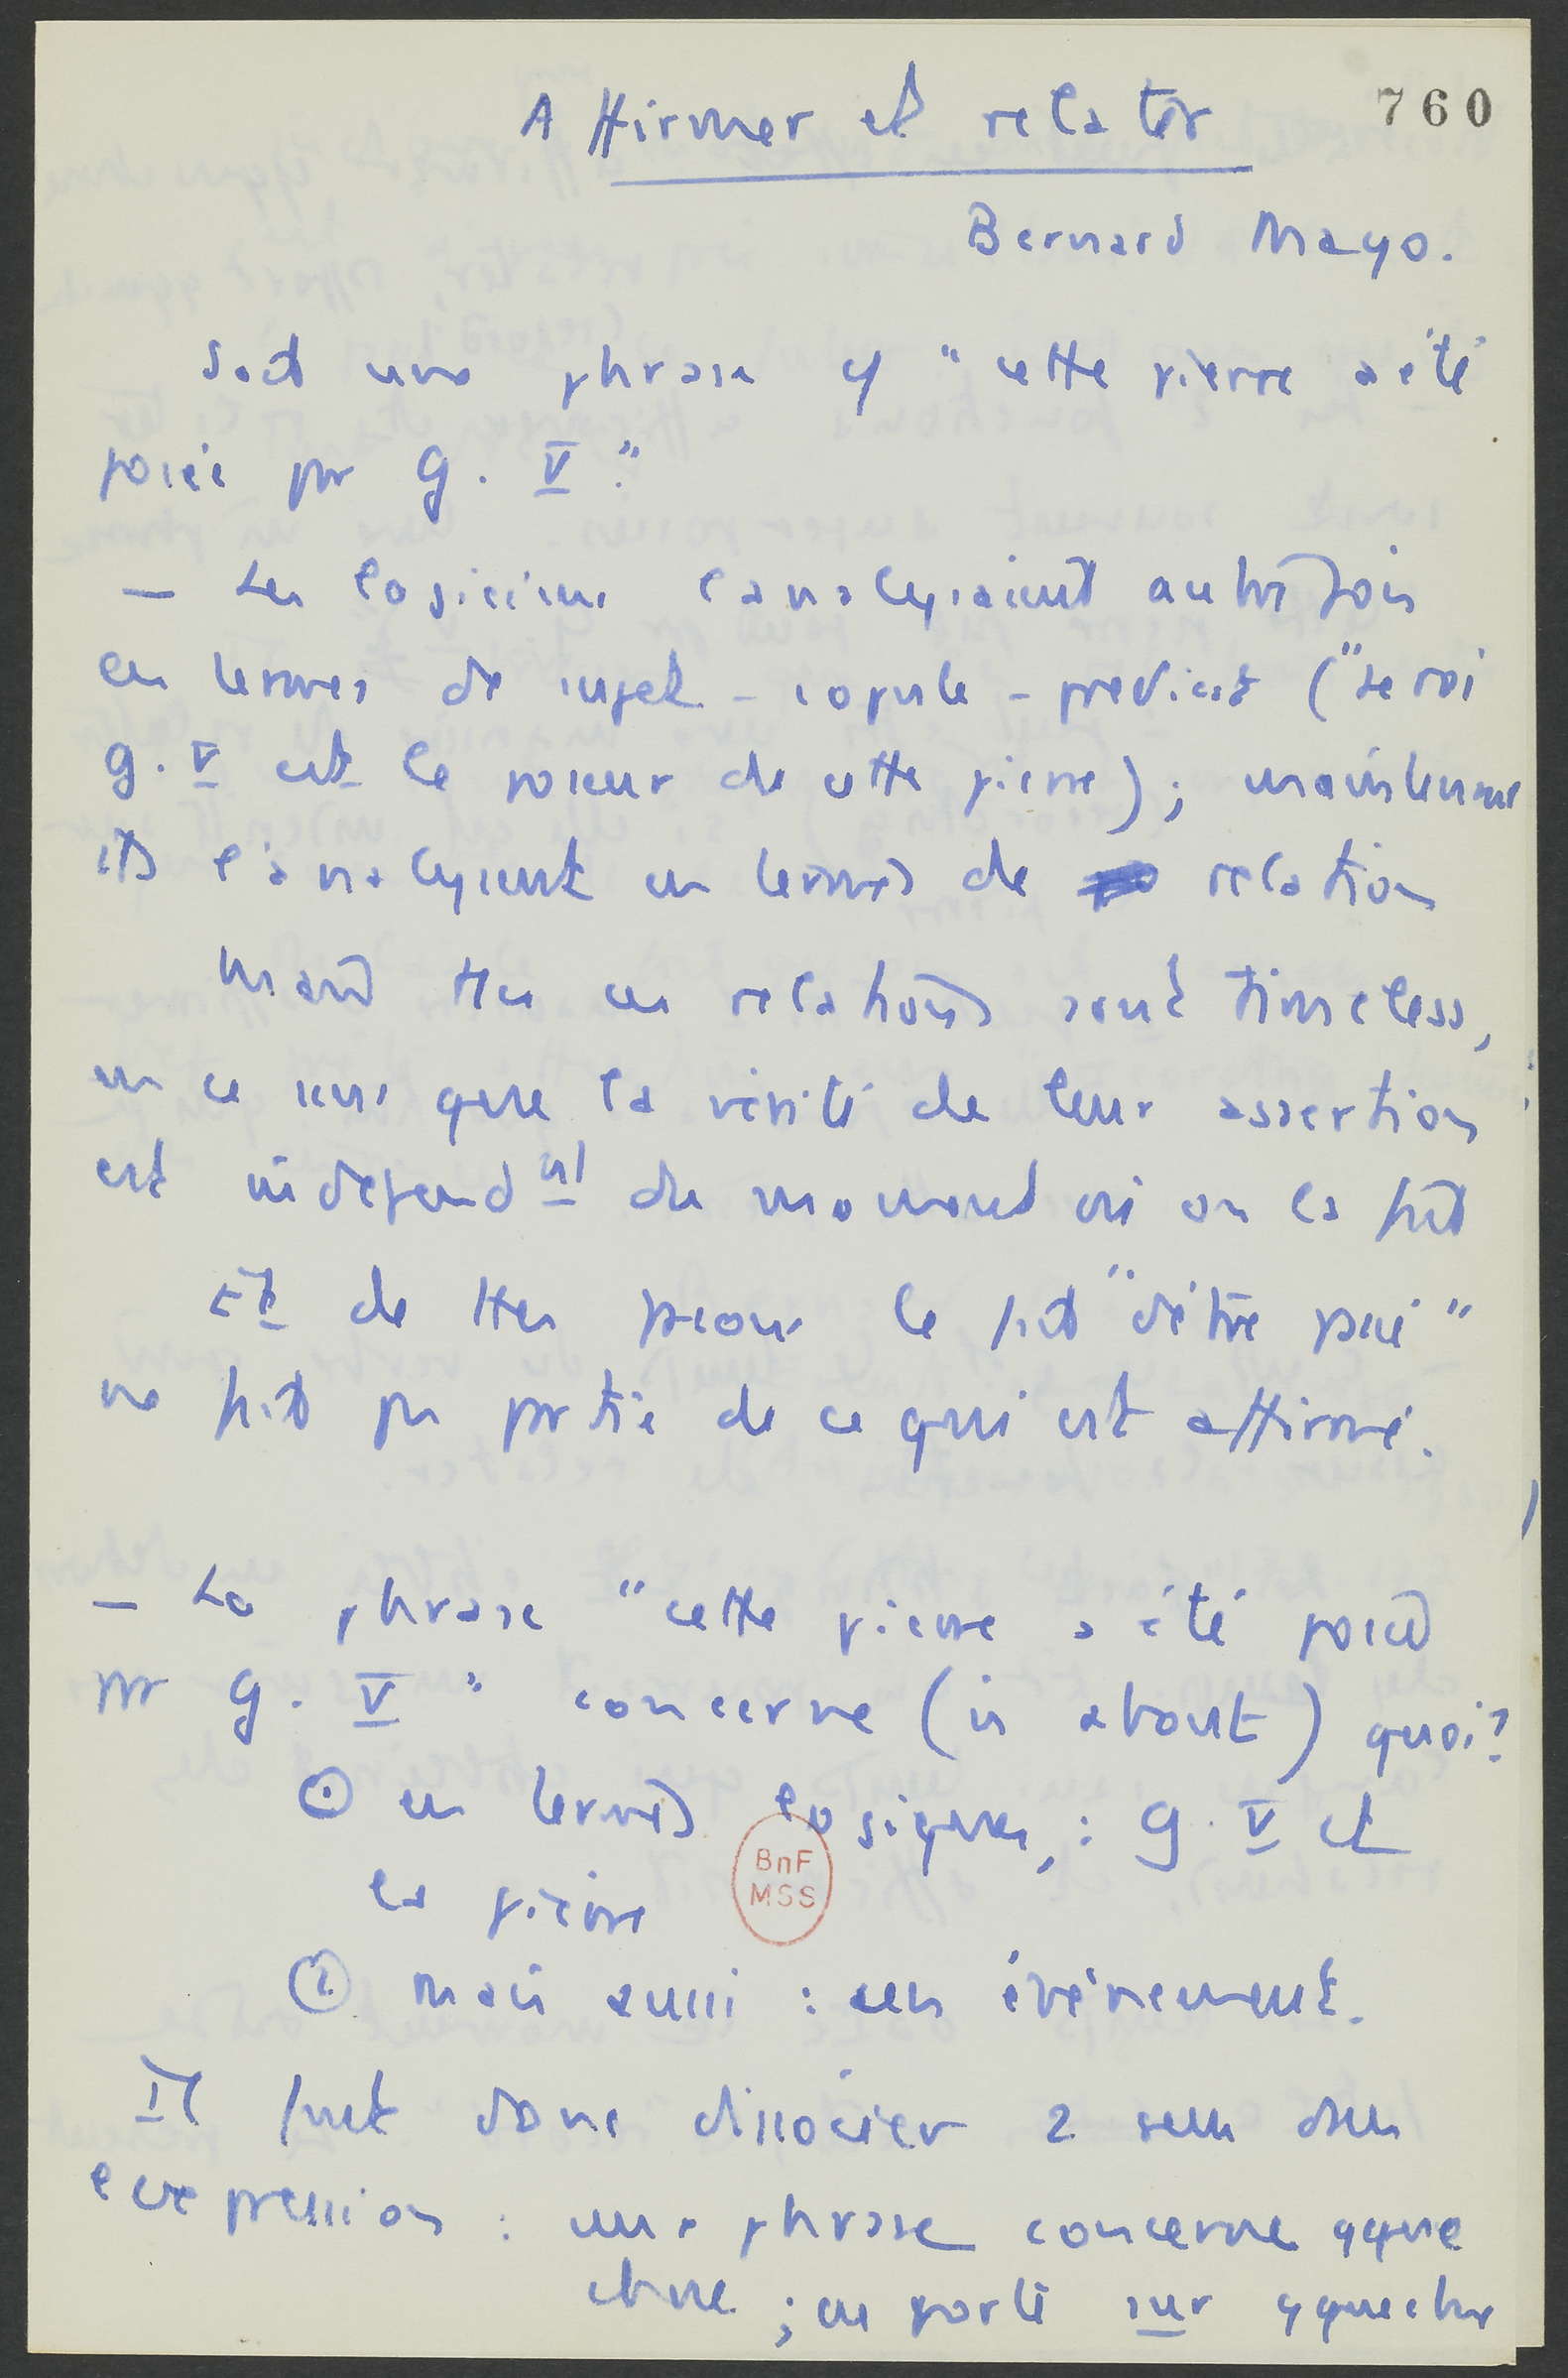 760
Affirmer et relater
Bernard Mayo.
Soit une phrase cf "cette pierre a été
posée par G. V."
– Les logiciens l'analysaient autrefois
en termes de sujet - copule - predicat ("Le roi
G. V est le poseur de cette pierre) ; maintenant
ils l'analysent en termes de relation
Mais ttes ces relations sont timeless,
en ce sens que la vérité de leur assertion
est independnt du moment où on la fait
Et de ttes façons le fait "d'être posé"
ne fait pas partie de ce qui est affirmé.
– La phrase "cette pierre a été posée
par G. V" concerne (is about) quoi?
① en termes logiques, : G. V et
la pierre
② Mais aussi : un événement.
Il faut donc dissocier 2 sens des
expression : une phrase concerne qque
chose ; ou porte sur qquechose
BnF
MSS